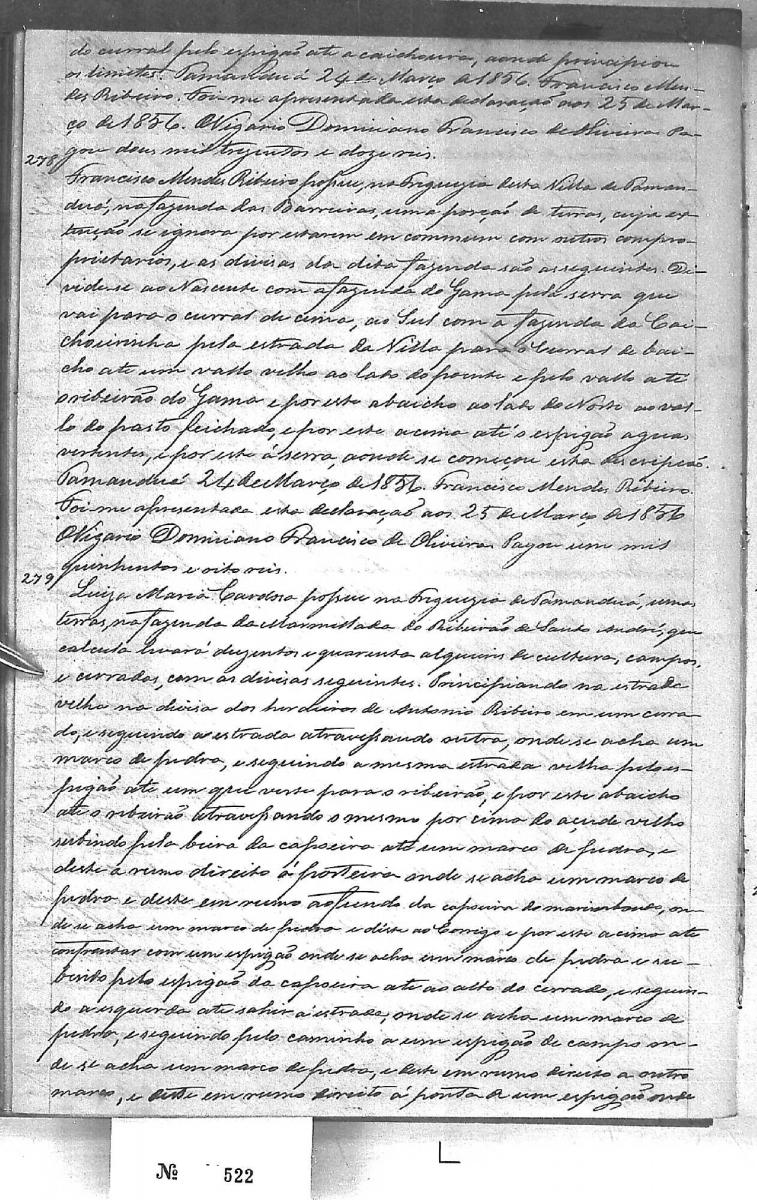 do curral pelo espigão até a caichoeira, aonde principiou
os limites. Tamanduá 24 de Março de 1856. Francisco Men-
des Ribeiro. Foi-me apresentada esta declaração aos 25 de Mar-
ço de 1856. O Vigario Dominiano Francisco de Oliveira Pa-
gou dous mil trezentos e doze reis.
278
Francisco Mendes Ribeiro possue, na Freguezia desta Villa de Taman-
duá, na fazenda das Barreiras, uma porção de terras, cuja ex-
tenção se ignora por estarem em commum com outros compro-
prietarios, e as divisas da dita fazenda são as seguintes. De-
vide-se ao Nascente com a fazenda do Gama pela serra que
vai para o curral de cima, ao Sul com a fazenda da Cai-
choeirinha pela estrada da Villa para o Curral de bai-
cho até um vallo velho ao lado do poente e pelo vallo até
o ribeirão do Gama e por este abaicho ao lado do Norte ao val-
lo do pasto feichado, e por este acima até o espigão aguas
vertentes, e por este á serra, aonde se começou esta descripção.
Tamanduá 24 de Março de 1856. Francisco Mendes Ribeiro.
Foi-me apresentada esta declaração aos 25 de Março de 1856
O Vigario Dominiano Francisco de Oliveira Pagou um mil
quinhentos e oito reis.
279
Luiza Maria Cardosa possue na Freguezia de Tamanduá, umas
terras, na fazenda da Marmellada do Ribeirão de Santo André, que
calcula levará duzentos e quarenta alqueires de cultura, campos,
e cerrados, com as divisas seguintes. Principiando na estrada
velha na divisa dos herdeiros de Antonio Ribeiro em um cerra-
do, e seguindo a estrada atravessando outra, onde se acha um
marco de pedra, e seguindo a mesma estrada velha pelo es-
pigão até um que verte para o ribeirão, e por este abaicho
até o ribeirão atravessando o mesmo por cima do açude velho
subindo pela beira da capoeira até um marco de pedra, e
deste a rumo direito á porteira onde se acha um marco de
pedra e deste em rumo ao fundo da capoeira do marimbondo, on-
de se acha um marco de pedra e deste ao Corrigo e por este acima até
confrontar com um espigão onde se acha um marco de pedra e su-
bindo pelo espigão da capoeira até ao alto do cerrado, e seguin-
do a esquerda até sahir á estrada, onde se acha um marco de
pedra, e seguindo pelo caminho a um espigão de campo on-
de se acha um marco de pedra, e deste em rumo direito a outro
marco, e deste em rumo direito á ponta de um espigão onde
Nº 522